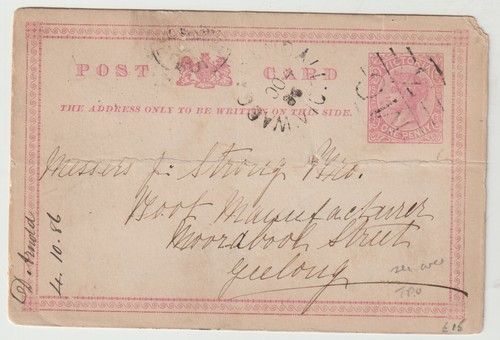 POST CARD
THE ADDRESS ONLY TO BE WRITTEN ON THIS SIDE.
VICTORIA
ONE PENNY
Messers J. Strong & Bro.
Boot Manufacturer
Moorabool Street
Geelong
see over
TPO
£15
D Arnold
4.10.86